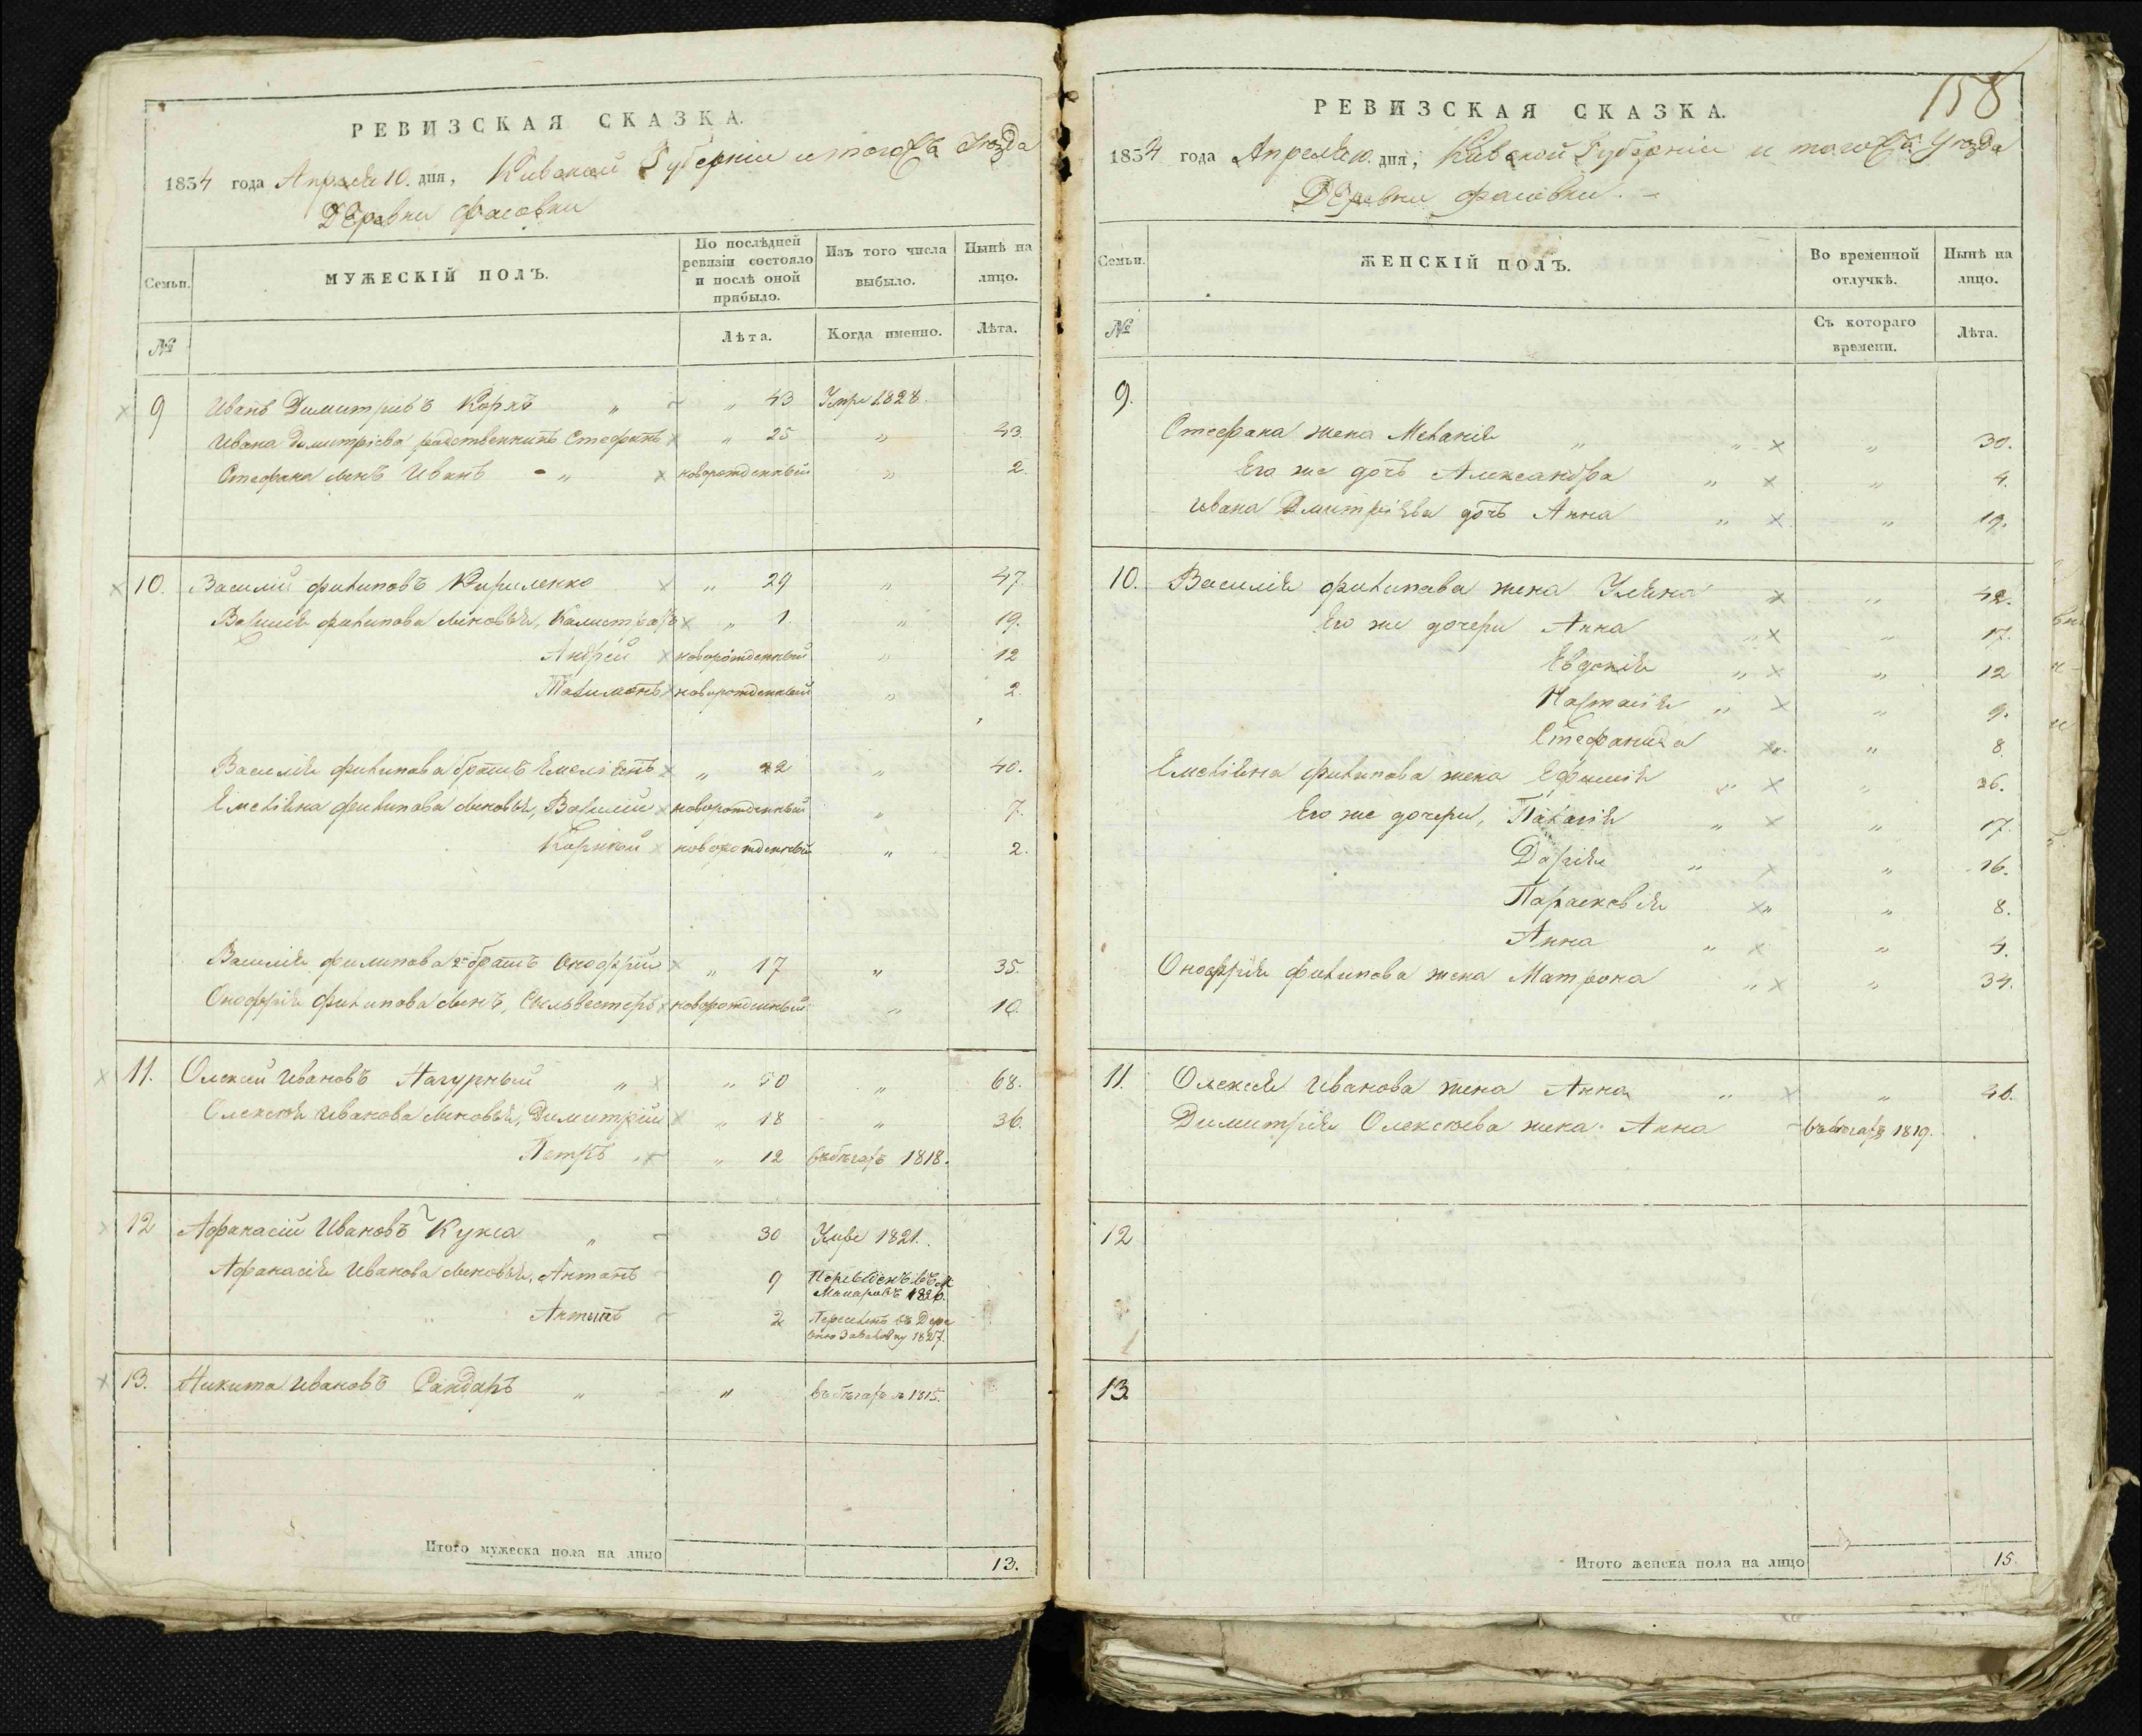 РЕВИЗСКАЯ СКАЗКА.
1834 года Апреля 10. дня, Киевской Губерніи и тогожъ Уезда
Деревни Фасовки
Семьи.
МУЖЕСКІЙ ПОЛЪ.
По послѣдней ревизіи состояло и послѣ оной прибыло.
Изъ того числа выбыло.
Нынѣ на лицо.
№
Лѣта.
Когда именно.
Лѣта.
9 Иванъ Димитріевъ Коржъ " " 43 Умре 1828.
Ивана Димитріева родственникъ Стефанъ " 25 " 43.
Стефана сынъ Иванъ " новорожденный " 2.
10. Василій Филиповъ Кириленко " 29 " 47.
Василія Филипова сыновья, Калистратъ " 1. " 19.
Андрей новорожденный " 12
новорожденный " 2.
Василія Филипова братъ Емеліянъ " 22 " 40.
Емеліяна Филипова сыновья, Василій новорожденный " 7.
Корнѣй новорожденный " 2.
Василія Филипова 2й братъ Онофрій " 17 " 35.
Онофрія Филипова сынъ, Сильвестеръ новорожденный " 10.
11. Олексей Ивановъ Нагурный " " 50 " 68.
Олексѣя Иванова сыновья, Димитрій " 18 " 36.
Петръ " " 12 въ бѣгахъ 1818.
12 Афанасій Ивановъ Кукса " 30 Умре 1821.
Афанасія Иванова сыновья, Антонъ 9 Переведенъ въ М. Макаровъ 1826.
Антипъ 2 въ Дере 1827.
13. Никита Ивановъ Рандаръ " " въ бѣгахъ 1815.
Итого мужеска пола на лицо 13.
158
РЕВИЗСКАЯ СКАЗКА.
1834 года Апреля 10. дня, Киевской Губерніи и тогожъ Уезда
Деревни Фасовки.
Семьи.
ЖЕНСКІЙ ПОЛЪ.
Во временной отлучкѣ.
Нынѣ на лицо.
№
Съ котораго времени.
Лѣта.
9.
Стефана жена Меланія " " " 30.
Его же дочь Александра " " 4.
Ивана Дмитріева дочь Анна " " 19.
10. Василія Филипова жена Уляна " " 42.
Его же дочери Анна " " 17.
Евдокія " " 12
Настасія " " 9.
Стефанида " " 8.
Емеліяна Филипова жена Ефимія " " 36.
Его же дочери, Палагія " " 17.
Дарія " " 16.
Парасковія " " 8.
Анна " " 4.
Онофрія Филипова жена Матрона " " 34.
11. Олексея Иванова жена Анна " " 40.
Димитрія Олексеева жена Анна въ бѣгахъ 1819.
12
13.
Итого женска пола на лицо 15.